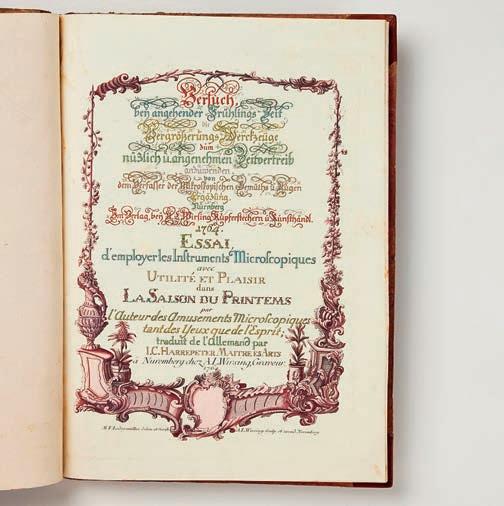 Versuch,
bey angehender Frühlings-Zeit
die
Vergrößerungs-Werckzeuge
zum
nüzlich u. angenehmen Zeitvertreib
anzuwenden
von
dem Verfasser der Mikroskopischen Gemüths u. Augen
Ergözung
Nürnberg
Im Verlag, bey A. L. Wirsing, Kupferstechern u. Kunsthändl.
1764.
ESSAI,
d'employer les Instruments Microscopiques
avec
UTILITÉ ET PLAISIR
dans
LA SAISON DU PRINTEMS
par
l'Auteur des Amusements Microscopiques
tant des Yeux que de l'Esprit;
traduit de l'Allemand par
I. C. HARREPETER, MAITRE ES ARTS
à Nuremberg chez A. L. Wirsing, Graveur.
1764
M. F. Ledermüller delin. et
A. L. Wirsing sculp. et excud. Norimberg